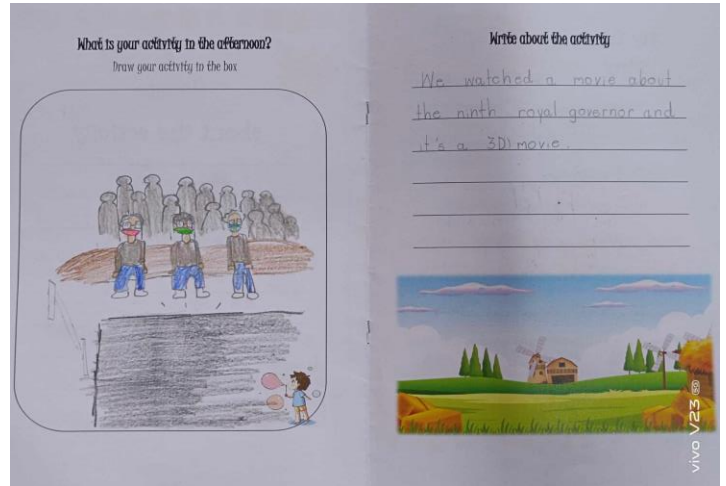 What is your activity in the afternoon?
Draw your activity in the box
Write about the activity
We watched a movie about
the ninth royal governor and
it's a 3D movie.
vivo V23 5G